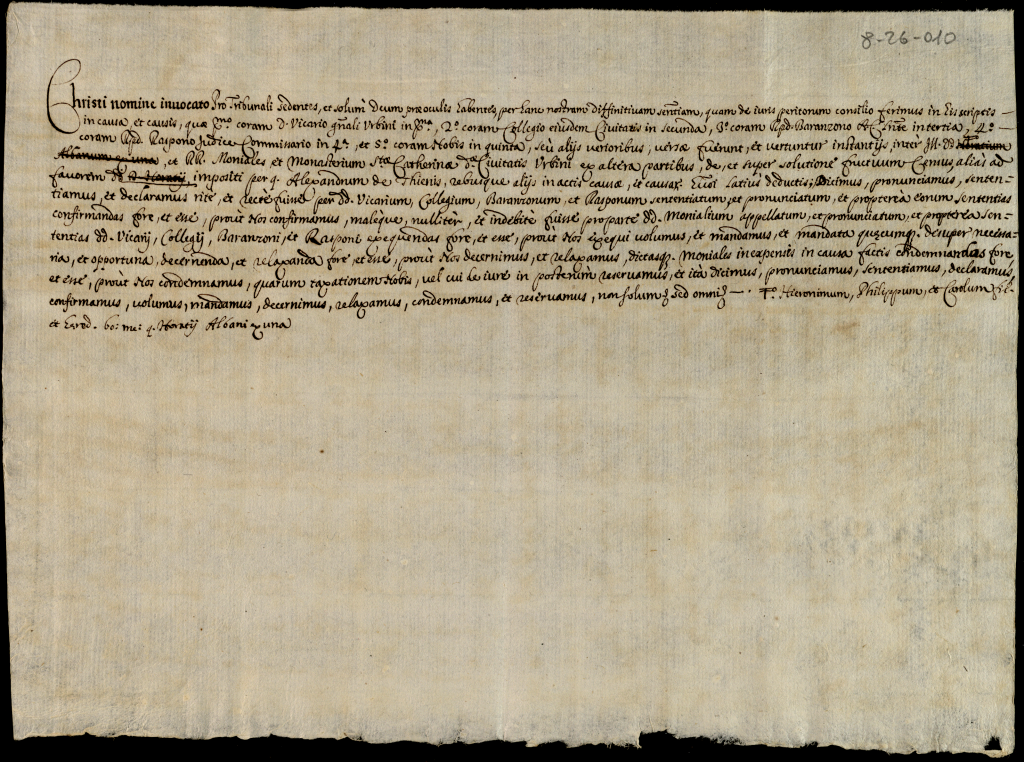 8-26-010
Christi nomine invocato Pro Tribunali sedentes, et solum Deum præ oculis habentes, per hanc nostram diffinitivam sentiam, quam de iuris peritorum consilio ferimus in his scriptis
in causa et causis, quæ p.mo coram D. Vicario gñali Urbini in p.ma, 2.o coram Collegio eiusdem Civitatis in secunda, 3.o coram R.pd. Baranzono in tertia, 4.o
coram R.pd. Raspono Judice Commissario in 4.ta, et 5.o coram Nobis in quinta, seu alijs verioribus, versæ fuerunt, et vertuntur instantijs, inter Ill. DD. Horatium
Albanum ex una, et RR. Moniales et Monasterium S.tæ Catherinæ d.æ Civitatis Urbini ex altera partibus, de, et super solutione fructuum Census alias ad
favorem d. D. Horatij, impositi per q. Alexandrum de Thienis, rebusque alijs in actis causæ, et causar. latius deductis; Dicimus, pronunciamus, senten-
tiamus, et declaramus ritè, et rectè fuisse per DD. Vicarium, Collegium, Baranzonum, et Rasponum sententiatum, et pronunciatum, et propterea eorum sententias
confirmandas fore, et esse, prout Nos confirmamus, maleque, nulliter, et indebitè fuisse pro parte DD. Monialium appellatum, et pronunciatum, et propterea sen-
tentias DD. Vicarij, Collegij, Baranzoni, et Rasponi exequendas fore, et esse, prout Nos exequi volumus, et mandamus, et mandata quæcumq. desuper necessa-
ria, et opportuna, decernenda, et relaxanda fore, et esse, prout Nos decernimus, et relaxamus, dictasq. Moniales in expensis in causa factis condemnandas fore,
et esse, prout Nos condemnamus, quarum taxationem Nobis, vel cui de iure in posterum reservamus, et ità dicimus, pronunciamus, sententiamus, declaramus,
confirmamus, volumus, mandamus, decernimus, relaxamus, condemnamus, et reservamus, non solum sed omni — . Hieronimum, Philippum, et Carolum fil.
et hæred. bo: me: q. Horatij Albani ex una